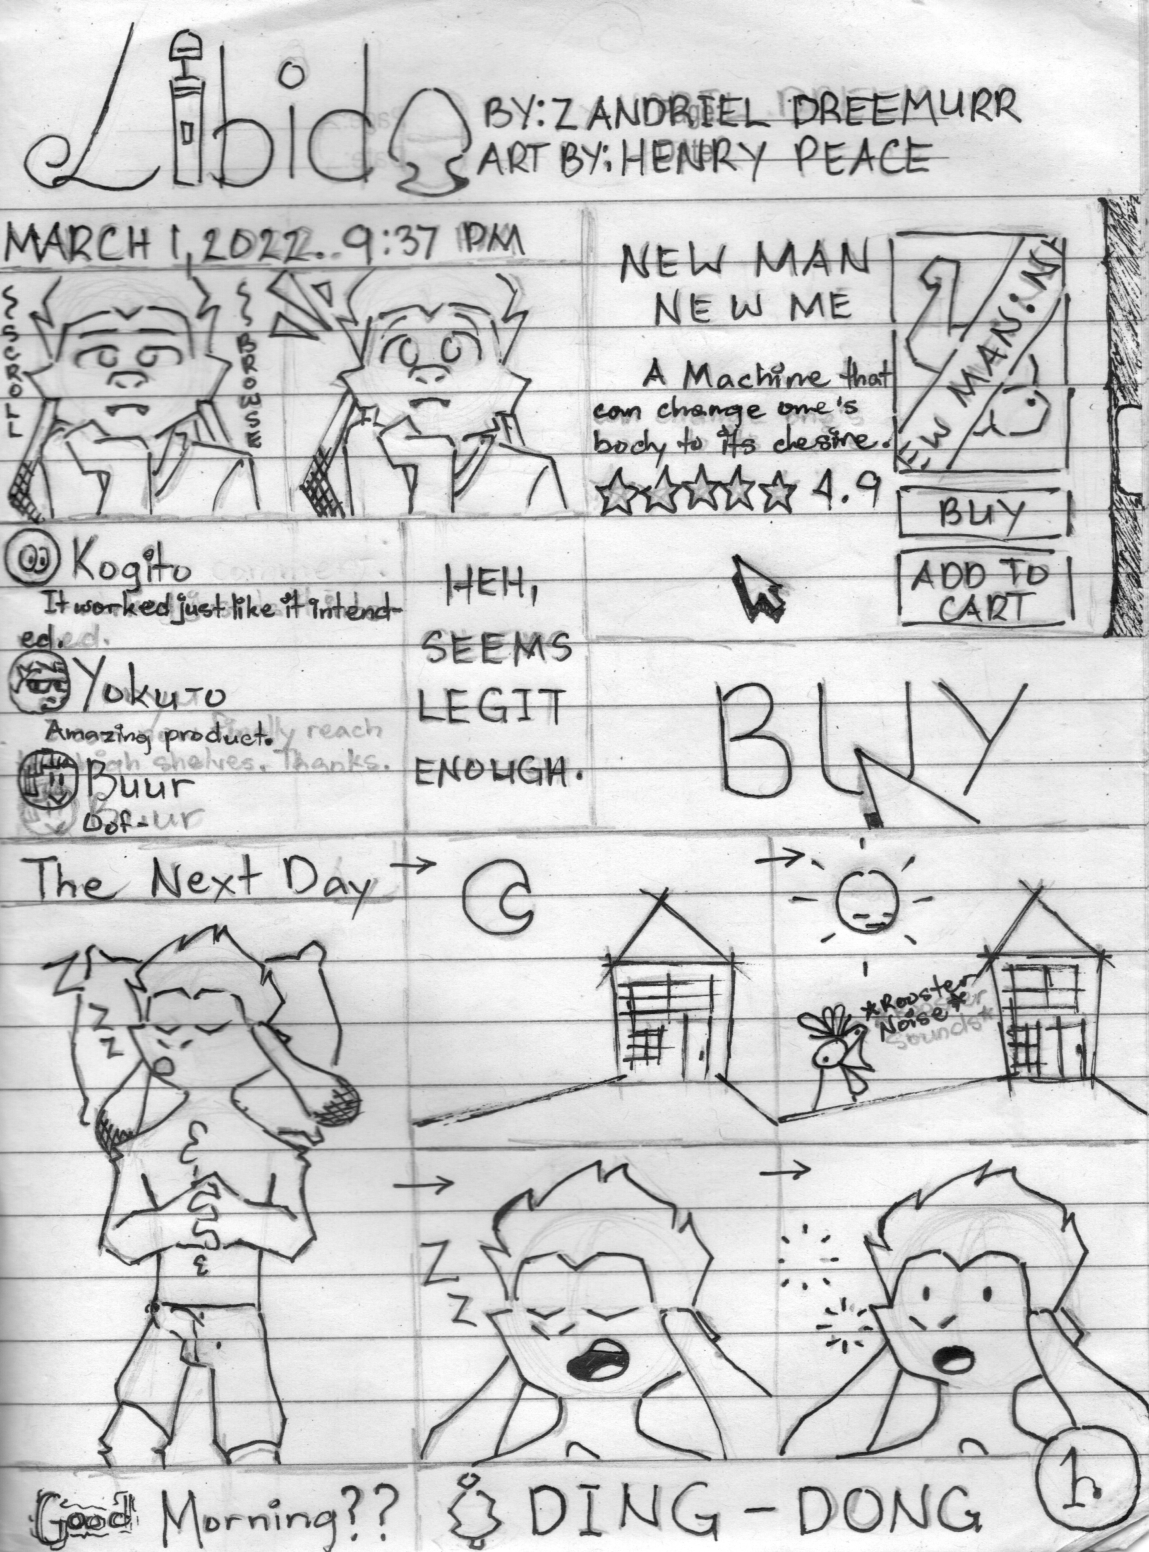 Libido
BY: ZANDRIEL DREEMURR
ART BY: HENRY PEACE
MARCH 1, 2022. 9:37 PM
SCROLL
BROWSE
NEW MAN
NEW ME
A Machine that
can change one's
body to its desire.
4.9
NEW MAN: N
BUY
ADD TO
CART
Kogito
It worked just like it intend-
ed.
Yokuto
Amazing product.
Buur
Oof-
HEH,
SEEMS
LEGIT
ENOUGH.
BUY
The Next Day
*Rooster
Noise*
Z
z
z
Z
z
Good Morning??
DING-DONG
1